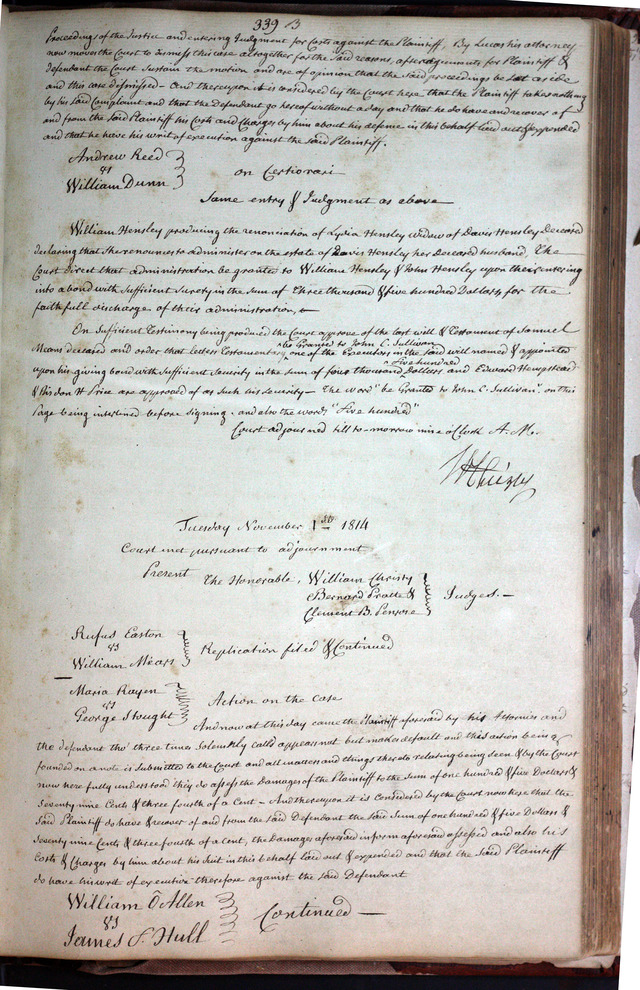 339 B
Proceedings of the Justice and entering Judgment for Costs against the Plaintiff, By Lucas his attorney
now moves the Court to dismiss this case altogether for the Said reasons, after arguments for Plaintiff &
defendant the Court Sustain the motion and are of opinion that the Said proceedings be Set aside
and this case dismissed – And thereupon it is considered by the Court here that the Plaintiff take nothing
by his Said Complaint and that the Defendant go hereof without a day and that he do have and recover of
and from the Said Plaintiff his Costs and Charges by him about his defense in this behalf laid out & expended
and that he have his writ of execution against the Said Plaintiff.
Andrew Reed
vs
William Dunn
on Certiorari
Same entry & Judgment as above
William Hensley producing the renonciation of Lydia Hensley widow of Davis Hensley Deceased
declaring that She renounces to administer on the estate of Davis Hensley her deceased husband, The
Court direct that administration be granted to William Hensley & John Hensley upon their entering
into a bond with Sufficient Surety in the Sum of Three thousand & five hundred Dollars for the
faithfull discharge of their administration, &
On Suficient Testimony being produced the Court approve of the last will & Testament of Samuel
be Granted to John C. Sullivan
Means deceased and order that letters Testamentary one of the Executors in the Said will named & appointed
five hundred
upon his giving bond with Sufficient Security in the sum of four thousand Dollars and Edward Hempstead
& Risdon H Price are approved of as Such his Security – The word "be Granted to John C. Sullivan", on this
Page being interlined before Signing. and also the words "Five hundred"
Court adjourned till to-morrow nine o'Clock A. M.
Tuesday November 1st 1814
Court met pursuant to adjournment
Present The Honorable, William Christy
Bernard Pratte &
Clement B. Penrose
Judges. –
Rufus Easton
vs
William Mears
Replication filed & Continued
Maria
vs
George
Action on the case
And now at this day came the Plaintiff aforesaid by his Attornies and
the defendant tho' three times Solemnly called appears not but makes default and this action being
founded on a note is Submitted to the Court and all matters and things thereto relating being seen & by the Court
now here fully understood they do assess the Damages of the Plaintiff to the Sum of one hundred & five Dollars &
Seventy nine Cents & three fourth of a Cent – And thereupon it is Considered by the Court now here that the
Said Plaintiff do have & recover of and from the Said Defendant the Said Sum of one hundred & five Dollars &
Seventy nine Cents & three fourth of a Cent, the Damages aforesaid in form aforesaid assessed and also his
Costs & Charges by him about his Suit in this behalf laid out & expended and that the Said Plaintiff
do have his writ of execution therefore against the Said Defendant
William O Allen
vs
James F. Hull
Continued –